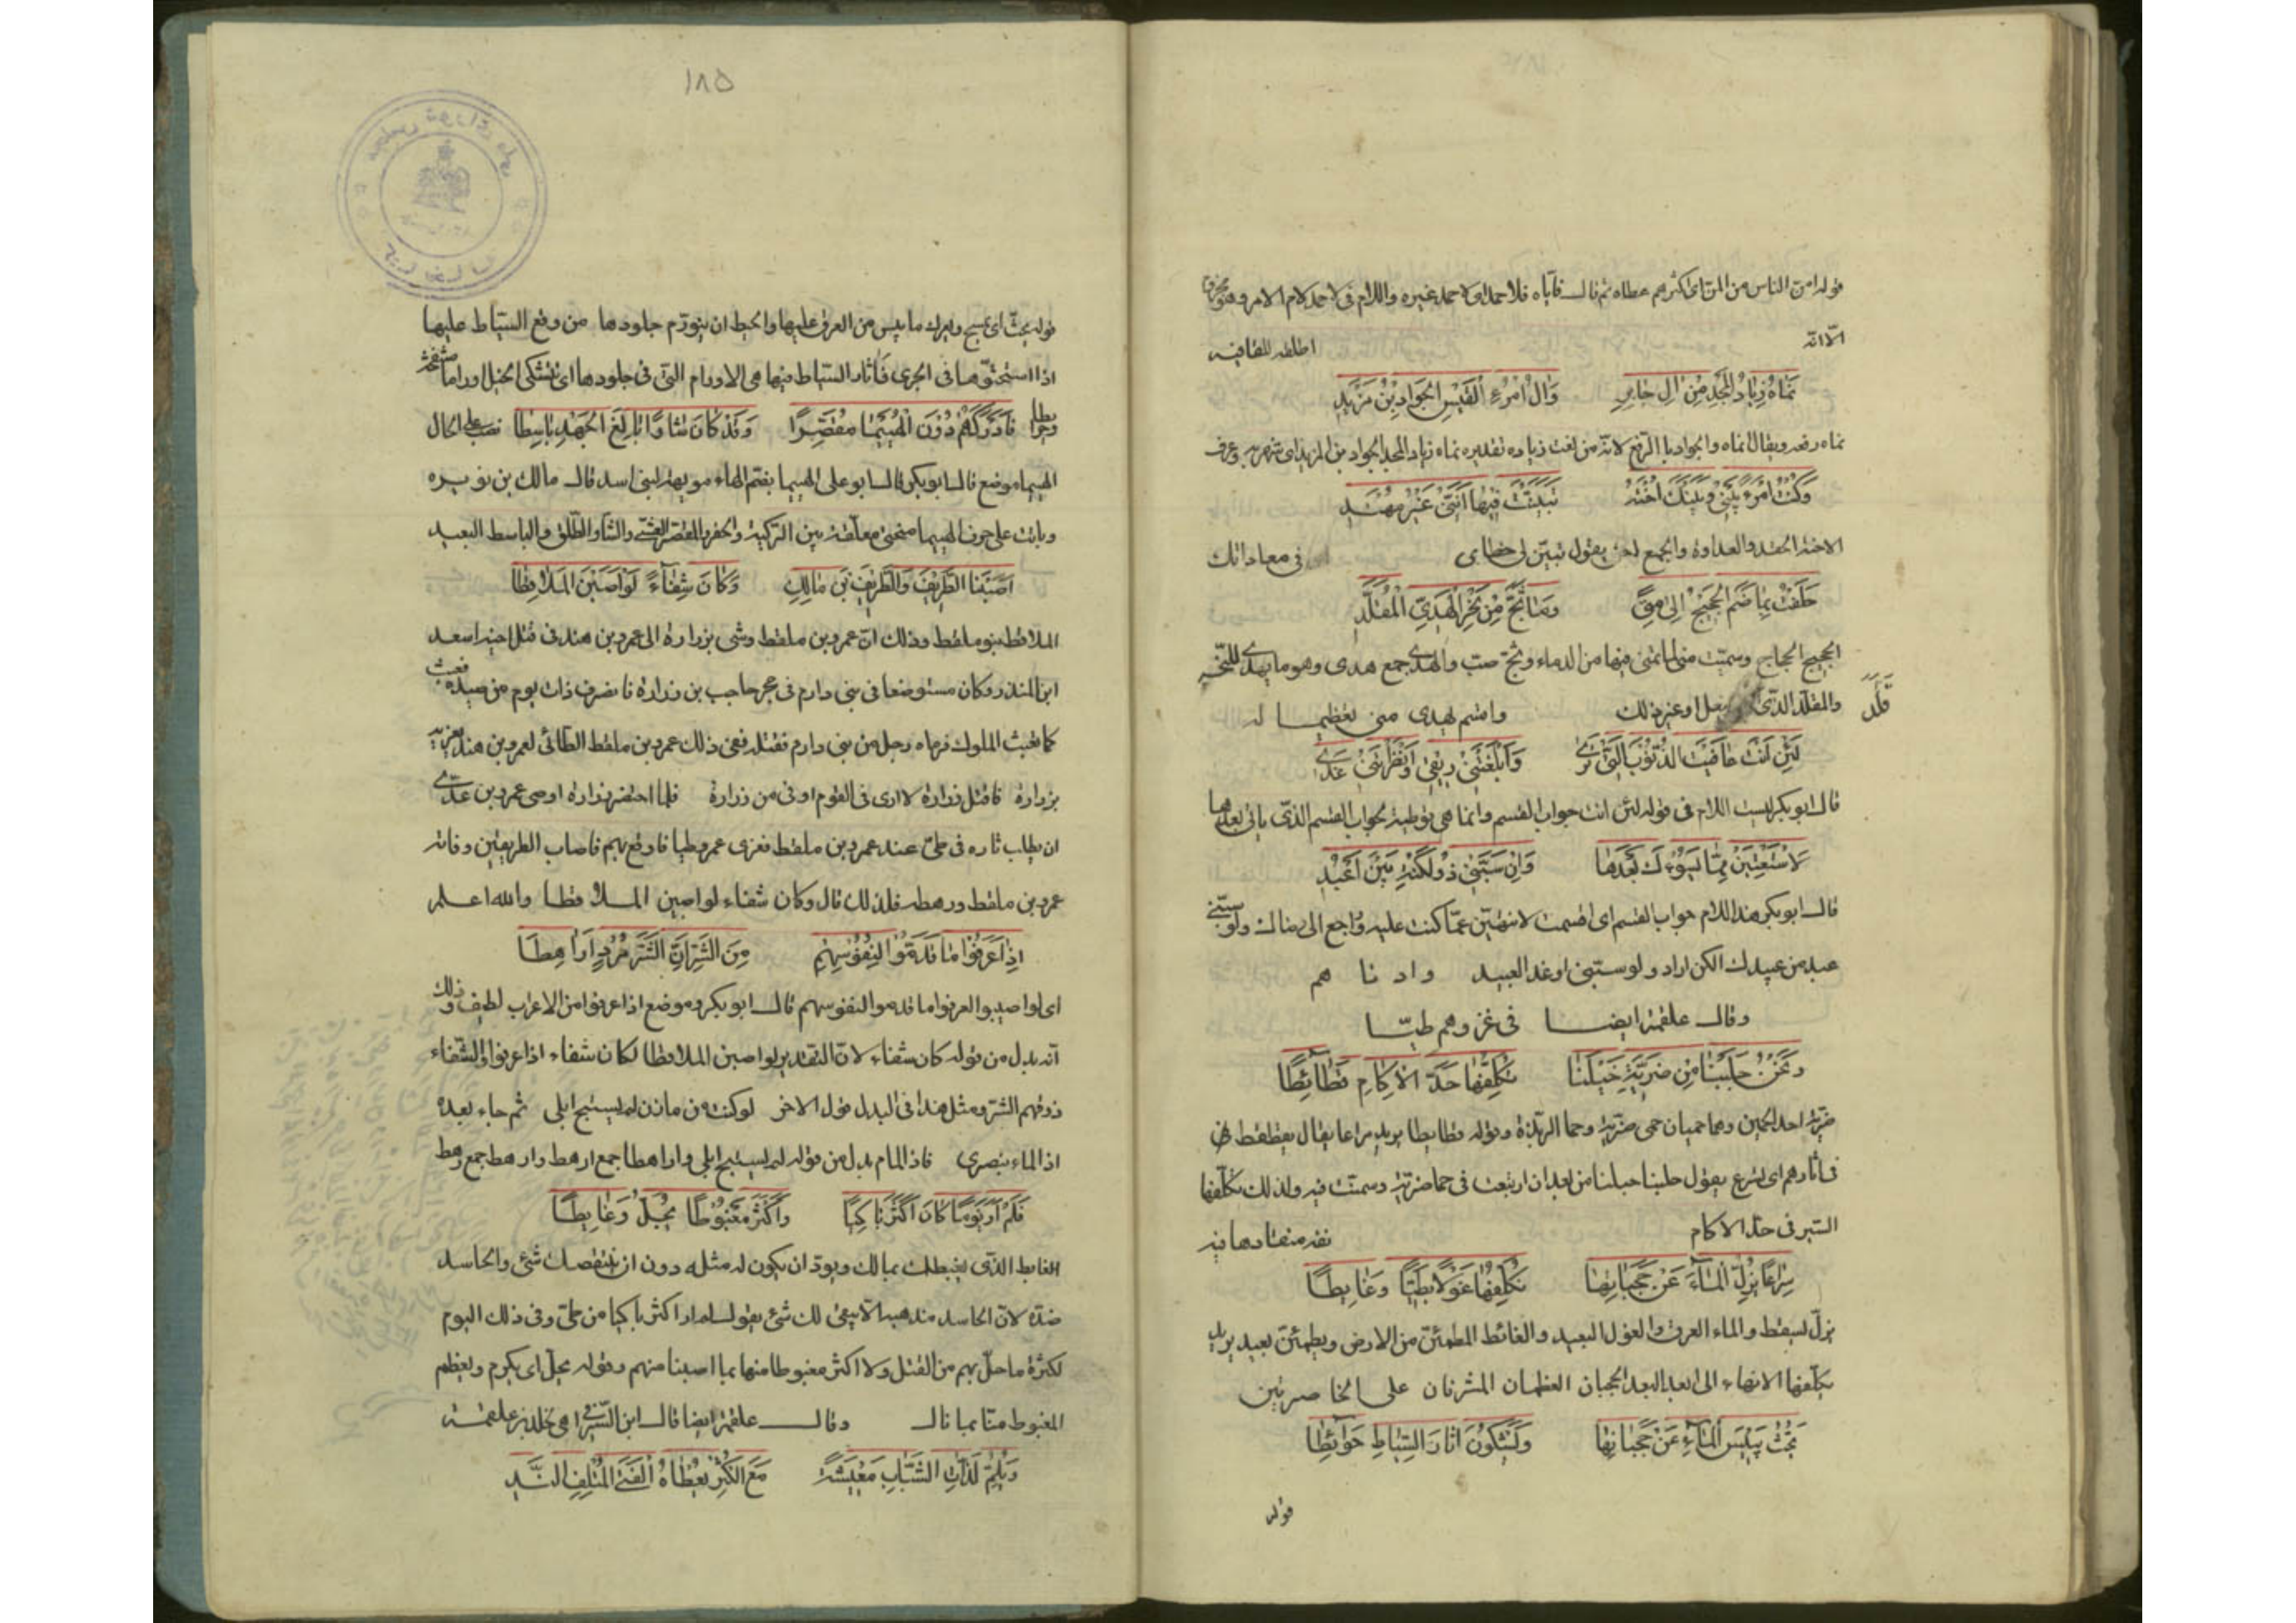 قوله امن الناس من المن اى اكثرهم عطاء ثم قال فآباه فلا حمد اى لا احمد غيره واللام فى لاحمد لام الامر وهو مجزوم
الا انه اطلقه للقافيه
نماه زياد المجد من ال جابر وال امرء القيس الجواد بن مزيد
نماه رفعه ويقال انماه والجواد بالرفع لانه من نعت زياد تقديره نماه زياد المجد الجواد بن المزيد اى شهر به وعرف
وكنت امرء بينى وبينك احنة تبينت فيها اننى غير مهتد
الاحنة الحقد والعداوة والجمع احن يقول تبين لى خطاى فى معاداتك
حلفت بما ضم الحجيج الى منى وما ثج من نحر الهدى المقلد
الحجيج الحجاج وسميت منى لما تمنى فيها من الدماء وثج صب والهدى جمع هدى وهو ما يهدى للنحر
والمقلد الذى قلد بنعل او غير ذلك واقسم بهدى منى تعظيما له
لئن انت عافيت الذنوب التى ترى وابلغتنى ريقى وانظرتنى غدى
قال ابو بكر ليست اللام فى قوله لئن انت جواب القسم وانما هى توطية لجواب القسم الذى ياتى بعدها
لاستعتبن مما يسوءك بعدها وان سبنى ذو لكنة بين اعبد
قال ابو بكر هذا اللام جواب القسم اى اقسمت لانتهين عما كنت عليه واراجع الى منالك ولو سبنى
عبد من عبيدك الكن اراد ولو سبنى اوغد العبيد وادناهم
وقال علقمة ايضا فى غزوهم طيا
ونحن جلبنا من ضرية خيلنا نكلفها حد الاكام قطائطا
ضرية احد الحميين وهما حميان حمى ضرية وحما الربذة وقوله قطايطا يريد سراعا يقال يقطقط فى
فى اثارهم اى يسرع يقول جلبنا خيلنا من بعد ان ارتبعت فى حما ضرية وسمنت فيه ولذلك نكلفها
السير فى حد الاكام
سراعا يزل الماء عن حجباتها نكلفها غولا بطينا وغايطا
يزل يسقط والماء العرق والغول البعيد والغائط المطمئن من الارض وبطين بعيد يريد
نكلفها الانتهاء الى ابعد البعد الحجبان العظمان المشرفان على الخاصرتين
يحث يبيس الماء عن حجباتها ويشكون اثار السياط حوائطا
قوله
١٨٥
قوله يحث اى يمسح ويفرك ما يبس من العرق عليها والخبط ان يتورم جلودها من وقع السياط عليها
اذا استحثوها فى الجرى فاثار السياط فيها هى الاورام التى فى جلودها اى تشتكى الخيل اوراما
فادركهم دون الهييما مقصرا وقد كان شاوا بالغ الجهد باسطا نصب على الحال
الهييما موضع قال ابو بكر قال ابو على الهييما بفتح الهاء مويهة لبنى اسد قال مالك بن نويره
وباتت على جوف الهييما منحتى معلقة بين الركية والجفر والمقصر العشى والشاو الطلق والباسط البعيد
اصبنا الطريف والطريف بن مالك وكان شفاء لو اصبن الملاقطا
الملاقط بنو ملقط وذلك ان عمرو بن ملقط وشى بزرارة الى عمرو بن هند فى قتل اخيه اسعد
ابن المنذر وكان مستوضعا فى بنى دارم فى حجر حاجب بن زرارة فانصرف ذات يوم من صيده فعبث
كما تعبث الملوك فرماه رجل من بنى دارم فقتله ففى ذلك عمرو بن ملقط الطائى لعمرو بن هند يغريه
بزرارة فاقتل زرارة لا ارى فى القوم اوفى من زرارة فلما احتضر زرارة اوصى عمرو بن عدى
ان يطلب ثاره فى طى عند عمرو بن ملقط فغزى عمرو طيا فاوقع بهم فاصاب الطريفين وفاته
عمرو بن ملقط ورهطه فلذلك قال وكان شفاء لو اصبن الملاقطا والله اعلم
اذا عرفوا ما قدموا لنفوسهم من الشر ان الشر مرد اراهطا
اى لو اصيبوا لعرفوا ما قدموا لنفوسهم قال ابو بكر وموضع اذا عرفوا من الاعراب لطيف وذلك
انه بدل من قوله كان شفاء لان التقدير لو اصبن الملاقطا لكان شفاء اذا عرفوا والشفاء
ذوقهم الشر ومثل هذا فى البدل قول الاخر لو كنت من مازن لم يستبح ابلى ثم جاء بعده
اذا لقام بنصرى فاذا لقام بدل من قوله لم يستبح ابلى واراهطا جمع ارهط وارهط جمع رهط
فلم ار يوما كان اكثر باكيا واكثر مغبوطا يجل وغابطا
الغابط الذى يغبطك بمالك ويود ان يكون له مثله دون ان ينتقصك شئ والحاسد
ضده لان الحاسد مذهبه الا يبقى لك شئ يقول لم ار اكثر باكيا من طى وفى ذلك اليوم
لكثرة ما حل بهم من القتل ولا اكثر مغبوطا منها بما اصبنا منهم وقوله يجل اى يكرم ويعظم
المغبوط منا بما نال وقال علقمة ايضا قال ابن السيرافى هى لخالد بن علقمة
ويلم لذات الشباب معيشة مع الكثر يعطاه الفتى المتلف الند